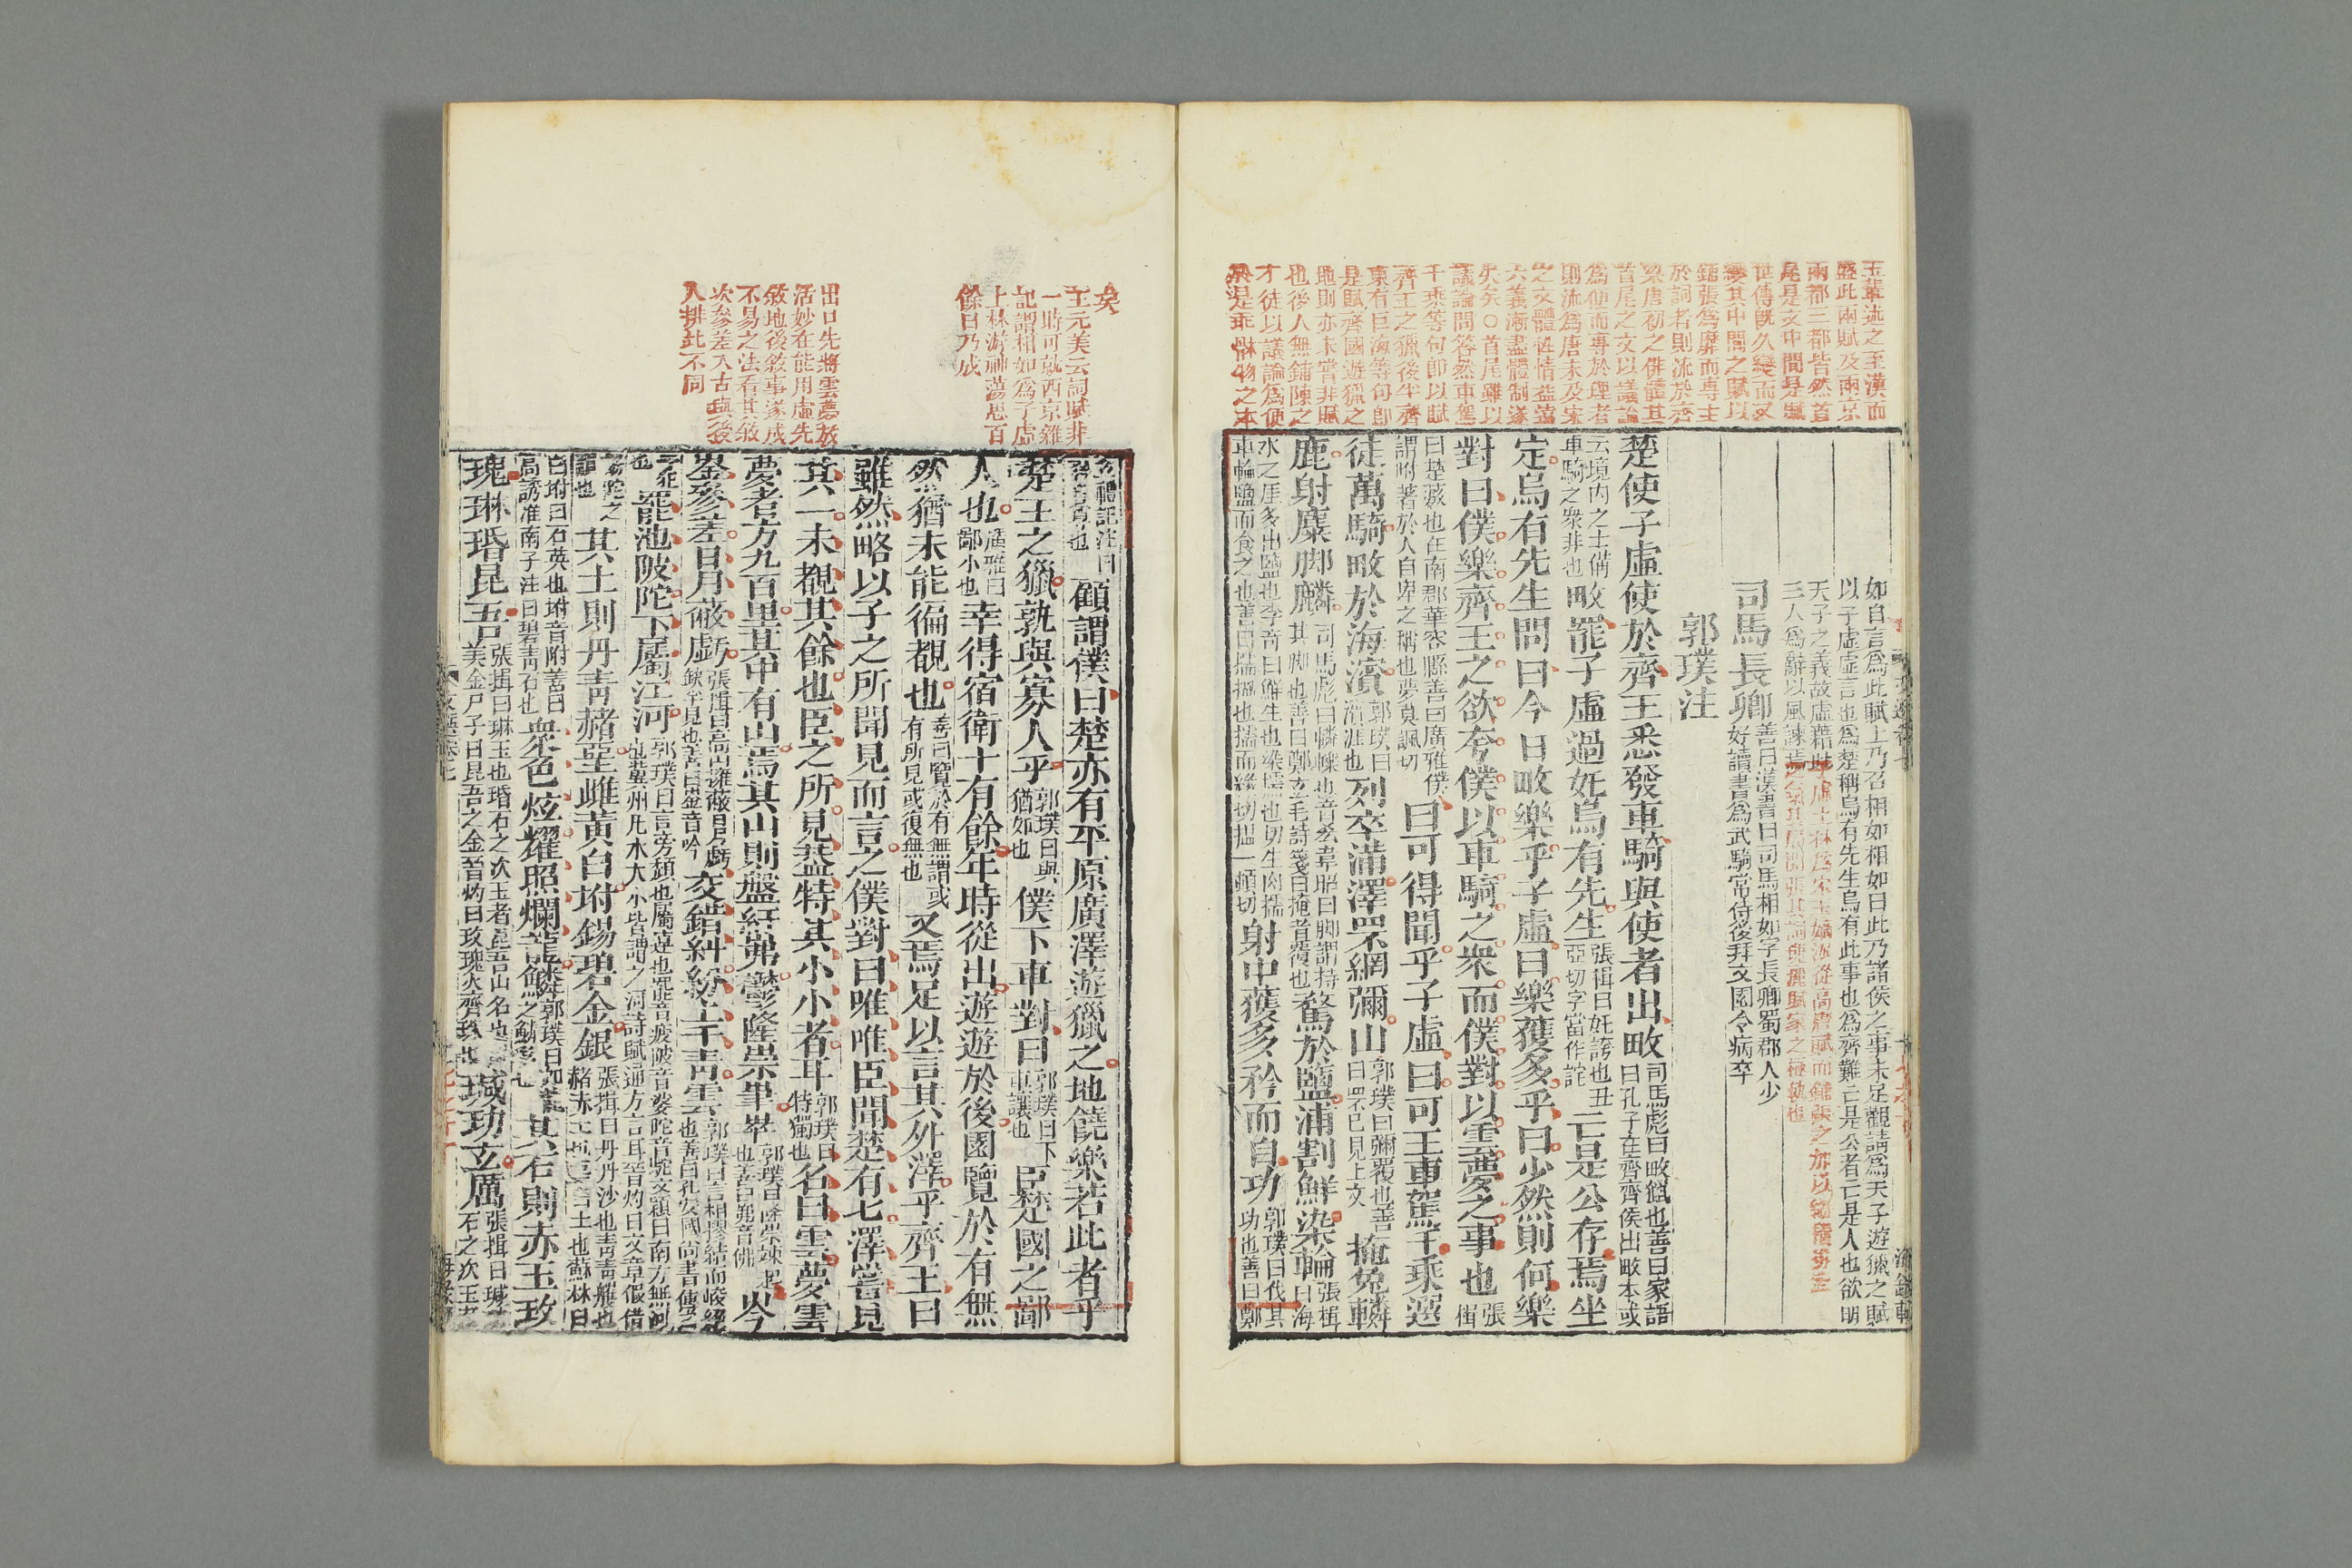 玉輩述之至漢而
盛此兩賦及兩京
兩都三都皆然首
尾是文中間是賦
世傳既久變而又
變其中間之賦以
鋪張為靡而專主
於詞者則流於齊
梁唐初之俳體其
首尾之文以議論
為便而專於理者
則流為唐末及宋
之文體性情益遠
六義漸盡體制遂
失矣〇首尾雖以
議論問答然車駕
千乘等句卽以賦
齊王之獵後半齊
東有巨海等句卽
是賦齊國遊獵之
地則亦未嘗非賦
也後人無鋪陳之
才徒以議論為便
於是乖體物之本
如自言為此賦上乃召相如相如曰此乃諸侯之事未足觀請為天子遊獵之賦
以子虛虛言也為楚稱烏有先生烏有此事也為齊難亡是公者亡是人也欲明
天子之義故虛藉此
三人為辭以風諫焉
司馬長卿善曰漢書曰司馬相如字長卿蜀郡人少
好讀書為武騎常侍後拜文園令病卒
郭璞注
楚使子虛使於齊王悉發車騎與使者出畋司馬彪曰畋獵也善曰家語
曰孔子在齊齊侯出畋本或
云境內之士備
車騎之衆非也畋罷子虛過奼烏有先生張揖曰奼誇也丑
亞切字當作詫亡是公存焉坐
定烏有先生問曰今日畋樂乎子虛曰樂獲多乎曰少然則何樂
對曰僕樂齊王之欲夸僕以車騎之衆而僕對以雲夢之事也張
揖
曰楚藪也在南郡華容縣善曰廣雅僕
謂附著於人自卑之稱也夢莫諷切曰可得聞乎子虛曰可王車駕千乘選
徒萬騎畋於海濱郭璞曰
濱涯也列卒滿澤罘網彌山郭璞曰彌覆也善
曰罘已見上文掩兔轔
鹿射麋脚麟司馬彪曰轔轢也音吝韋昭曰脚謂持
其脚也善曰鄭玄毛詩箋曰掩者覆也騖於鹽浦割鮮染輪張揖
曰海
水之厓多出鹽也李奇曰鮮生也染擩也切生肉擩
車輪鹽而食之也善曰擩搵也擩而緣切搵一頓切射中獲多矜而自功郭璞曰伐其
功也善曰鄭
玄禮記注曰
矜自負也顧謂僕曰楚亦有平原廣澤遊獵之地饒樂若此者乎
楚王之獵孰與寡人乎郭璞曰與
猶如也僕下車對曰郭璞曰下
車讓也臣楚國之鄙
人也廣雅曰
鄙小也幸得宿衛十有餘年時從出遊遊於後園覽於有無
然猶未能徧覩也善曰覽於有無謂或
有所見或復無也又焉足以言其外澤乎齊王曰
雖然略以子之所聞見而言之僕對曰唯唯臣聞楚有七澤嘗見
其一未覩其餘也臣之所見葢特其小小者耳郭璞曰
特獨也名曰雲夢雲
夢者方九百里其中有山焉其山則盤紆岪鬱隆崇嵂崒郭璞曰隆崇竦起
也善曰岪音佛岑
崟參差日月蔽虧張揖曰高山擁蔽日月虧
缺半見也善曰崟音吟交錯糾紛上干青雲郭璞曰言相摎結而峻絕
也善曰孔安國尚書傳云
干犯
也罷池陂陀下屬江河郭璞曰言旁頹也屬連也罷音疲陂音婆陀音駝文穎曰南方無河
也冀州凡水大小皆謂之河詩賦通方言耳晉灼曰文章假借
協陀之
韻也其土則丹青赭堊雌黃白坿錫碧金銀張揖曰丹丹沙也青青雘也
赭赤土也堊白土也蘇林曰
白坿曰石英也坿音附善曰
高誘淮南子注曰碧青石也衆色炫耀照爛龍鱗其石則赤玉玫
瑰琳瑉昆吾張揖曰琳玉也瑉石之次玉者昆吾山名也
美金尸子曰昆吾之金晉灼曰玫瑰火齊珠也瑊玏玄厲張揖曰瑊玏
石之次玉者
矣
王元美云詞賦非
一時可就西京雜
記謂相如為子虛
上林游神蕩思百
餘日乃成
出口先將雲夢放
活妙在能用虛先
敘地後敘事遂成
不易之法看其敘
次參差入古與後
人排比不同